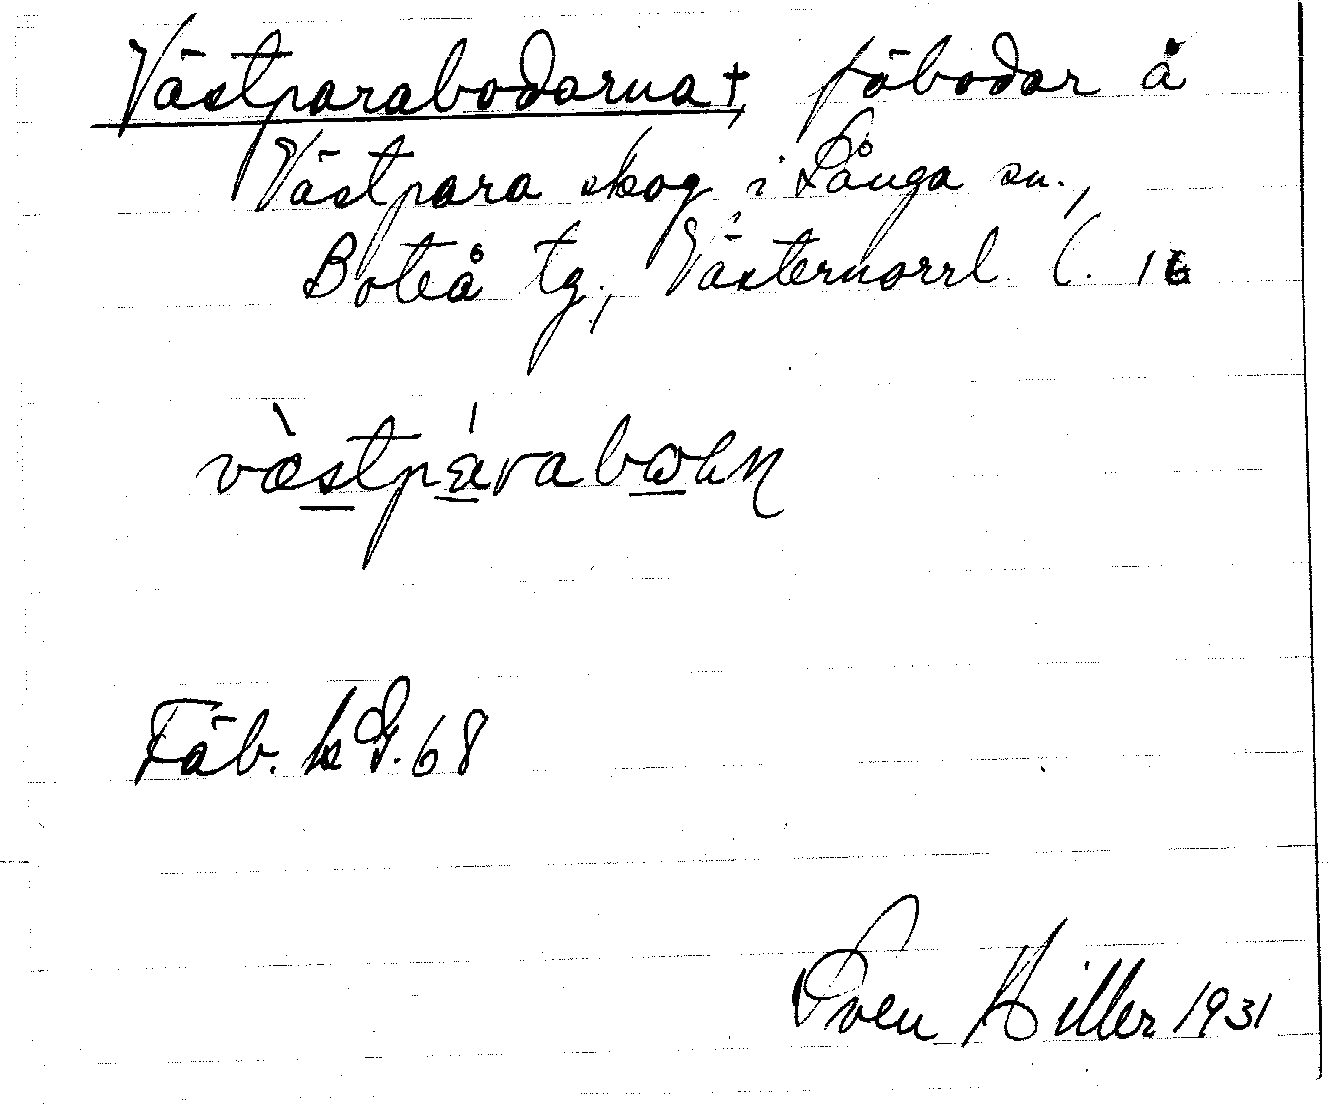 Västparabodarna †, fäbodar å
Västpara skog i Långa sn.,
Boteå tg., Västernorrl. l. 16
væstpáraboɷn
Fäb. k G. 68
Sven Hiller 1931